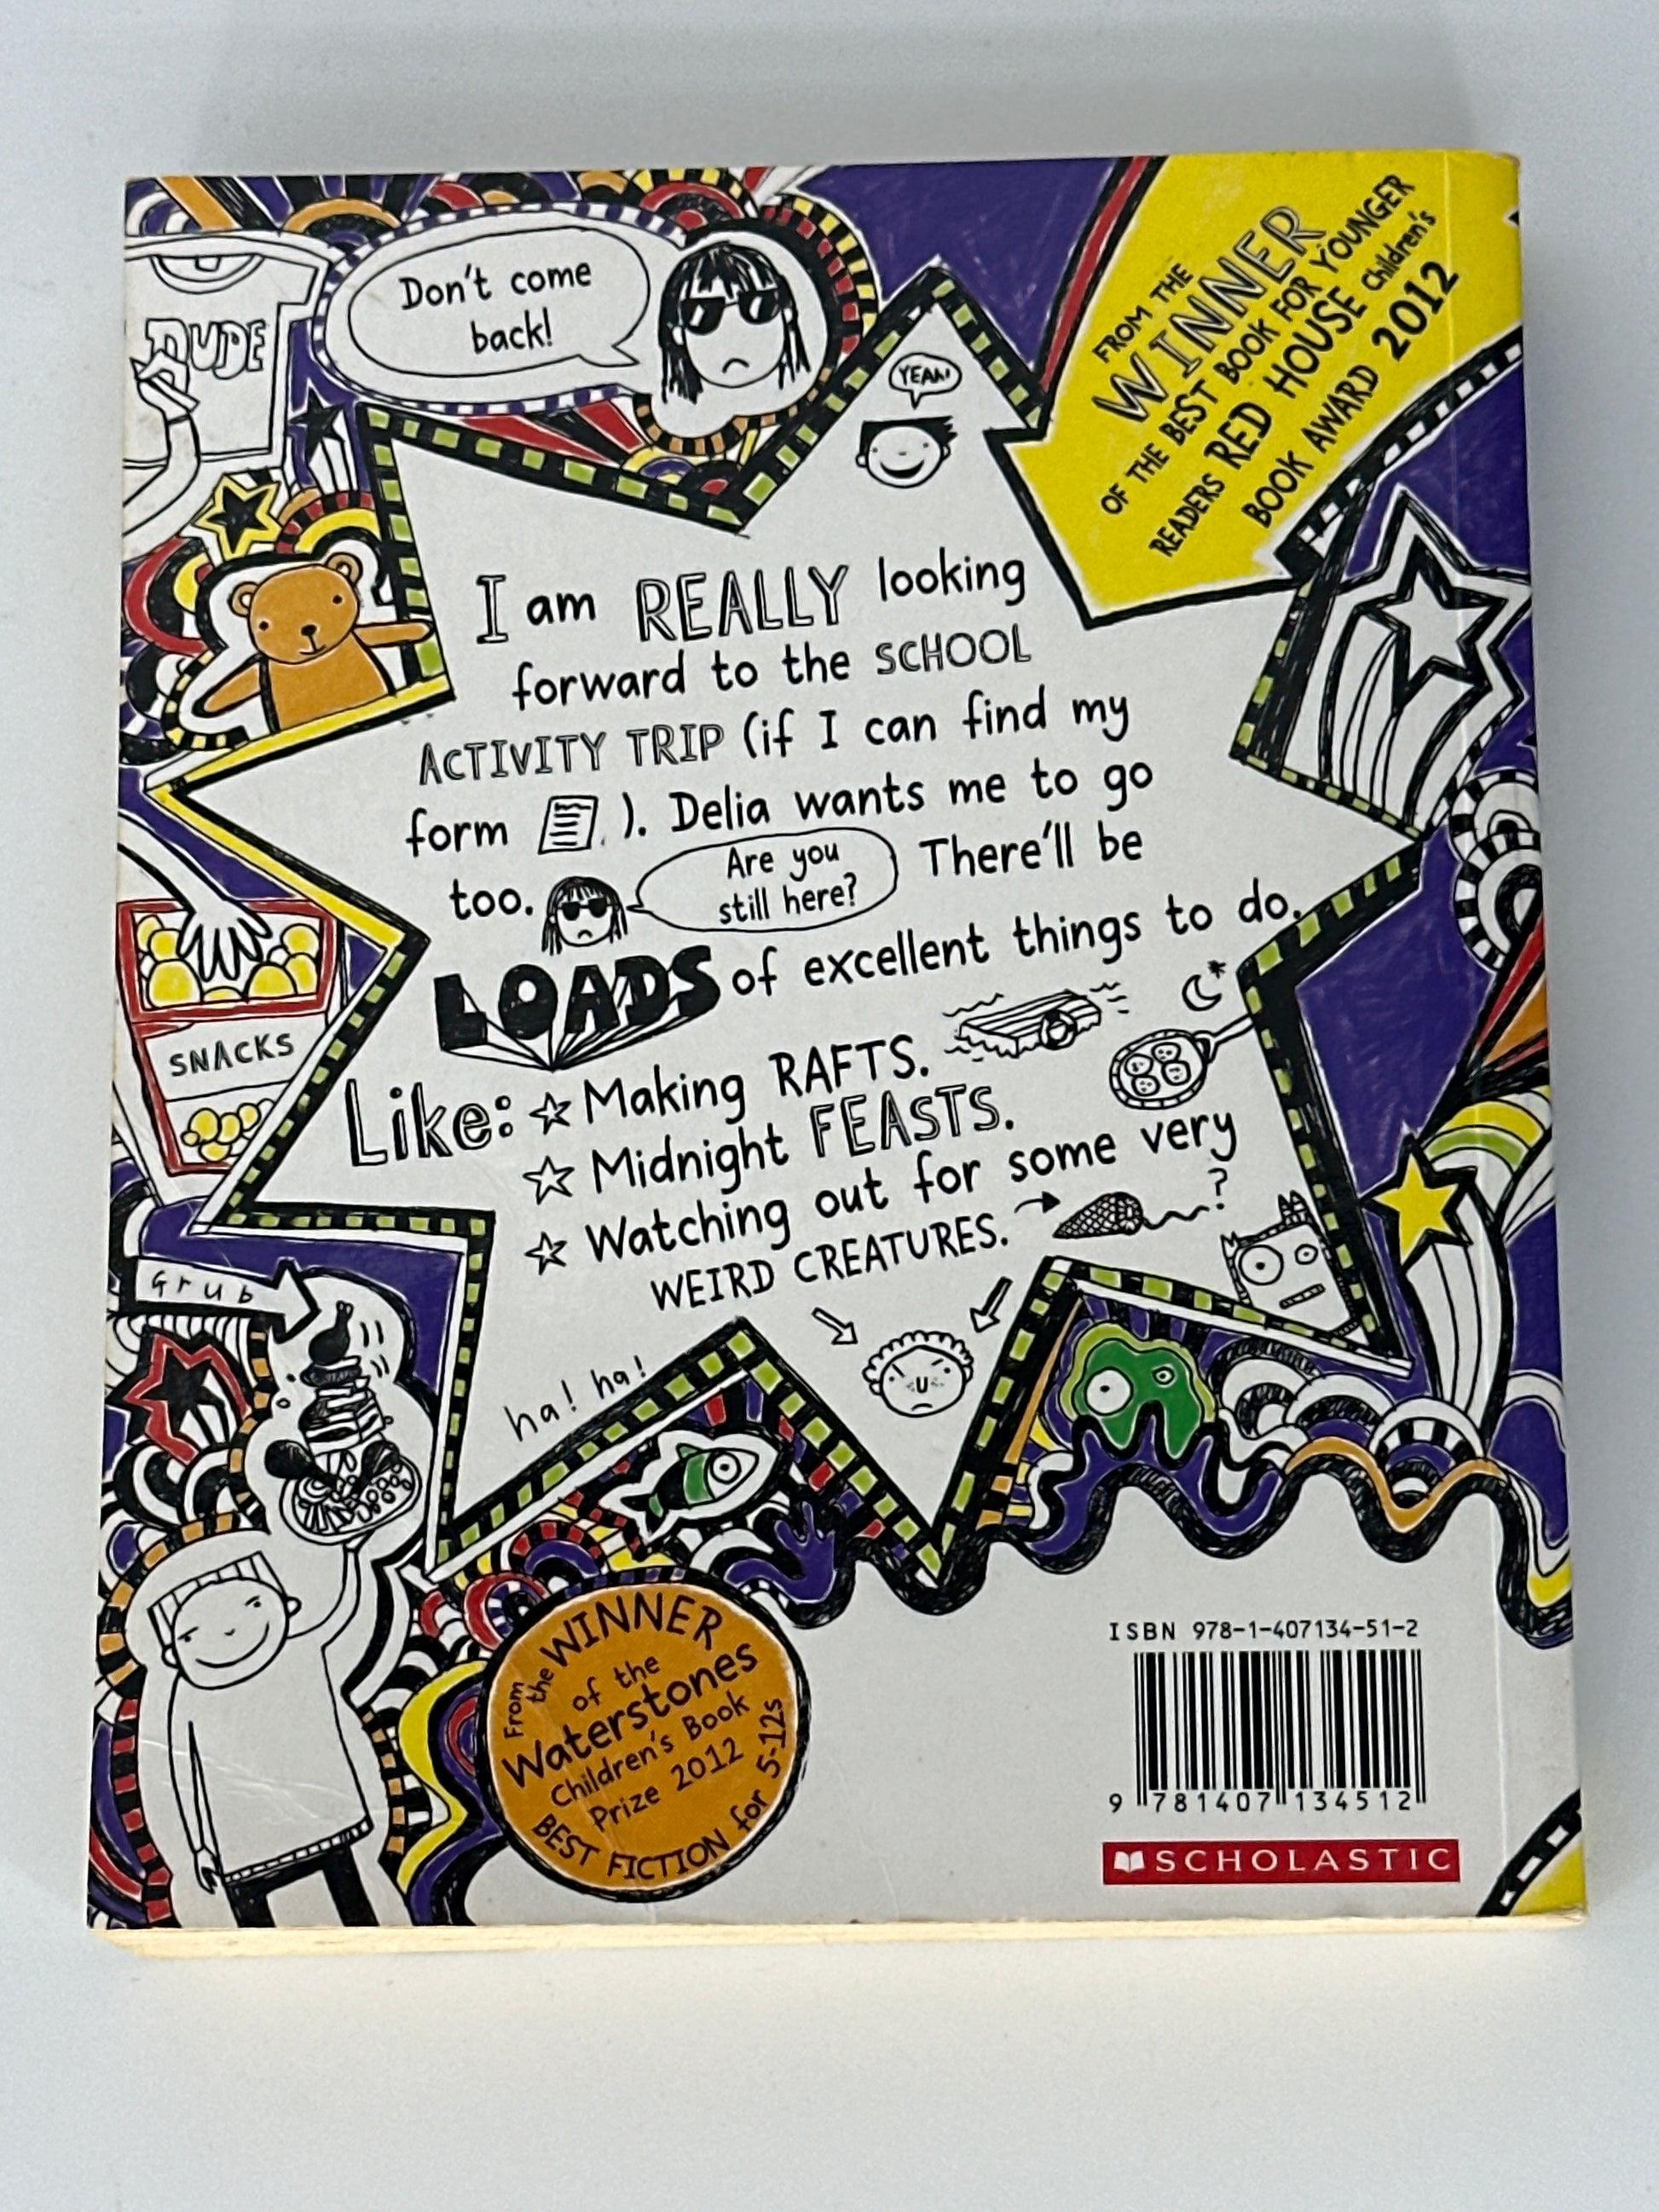 Don't come
back!
DUDE
YEAH!
FROM THE
WINNER
OF THE BEST BOOK FOR YOUNGER
READERS RED HOUSE children's
BOOK AWARD 2012
I am REALLY looking
forward to the SCHOOL
ACTIVITY TRIP (if I can find my
form ). Delia wants me to go
too. Are you still here? There'll be
LOADS of excellent things to do.
Like: ☆ Making RAFTS.
☆ Midnight FEASTS.
☆ Watching out for some very
WEIRD CREATURES. ?
SNACKS
Grub
ha! ha!
From the WINNER
of the
Waterstones
Children's Book
Prize 2012
BEST FICTION for 5-12s
ISBN 978-1-407134-51-2
9 781407 134512
SCHOLASTIC